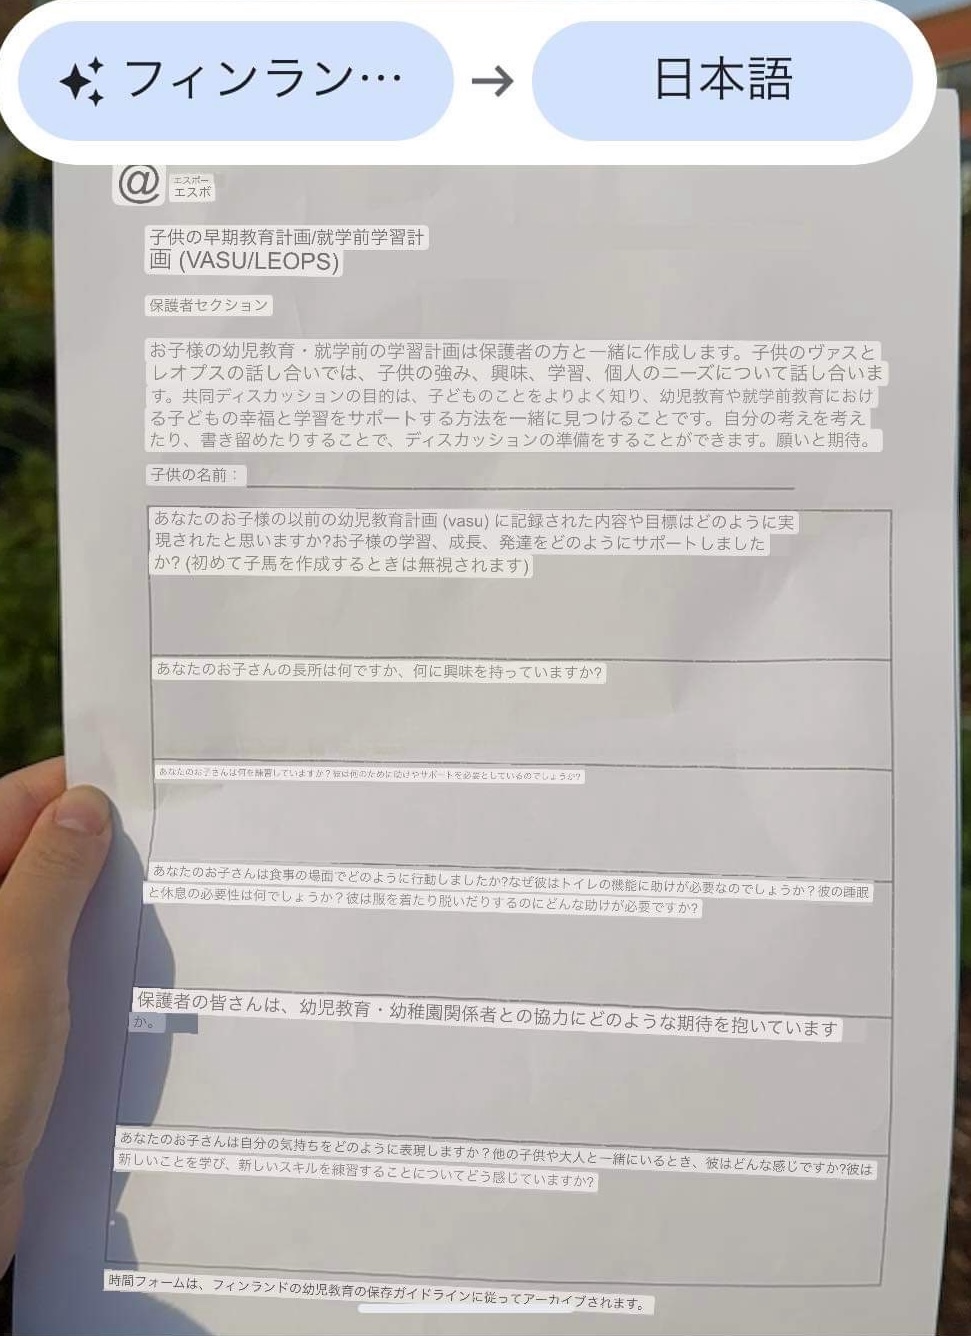 フィンラン… → 日本語
@ エスポー
エスボ
子供の早期教育計画/就学前学習計
画 (VASU/LEOPS)
保護者セクション
お子様の幼児教育・就学前の学習計画は保護者の方と一緒に作成します。子供のヴァスと
レオプスの話し合いでは、子供の強み、興味、学習、個人のニーズについて話し合いま
す。共同ディスカッションの目的は、子どものことをよりよく知り、幼児教育や就学前教育におけ
る子どもの幸福と学習をサポートする方法を一緒に見つけることです。自分の考えを考え
たり、書き留めたりすることで、ディスカッションの準備をすることができます。願いと期待。
子供の名前:
あなたのお子様の以前の幼児教育計画 (vasu) に記録された内容や目標はどのように実
現されたと思いますか?お子様の学習、成長、発達をどのようにサポートしました
か? (初めて子馬を作成するときは無視されます)
あなたのお子さんの長所は何ですか、何に興味を持っていますか?
あなたのお子さんは何を練習していますか？彼は何のために助けやサポートを必要としているのでしょうか?
あなたのお子さんは食事の場面でどのように行動しましたか?なぜ彼はトイレの機能に助けが必要なのでしょうか？彼の睡眠
と休息の必要性は何でしょうか？彼は服を着たり脱いだりするのにどんな助けが必要ですか?
保護者の皆さんは、幼児教育・幼稚園関係者との協力にどのような期待を抱いています
か。
あなたのお子さんは自分の気持ちをどのように表現しますか？他の子供や大人と一緒にいるとき、彼はどんな感じですか?彼は
新しいことを学び、新しいスキルを練習することについてどう感じていますか?
時間フォームは、フィンランドの幼児教育の保存ガイドラインに従ってアーカイブされます。